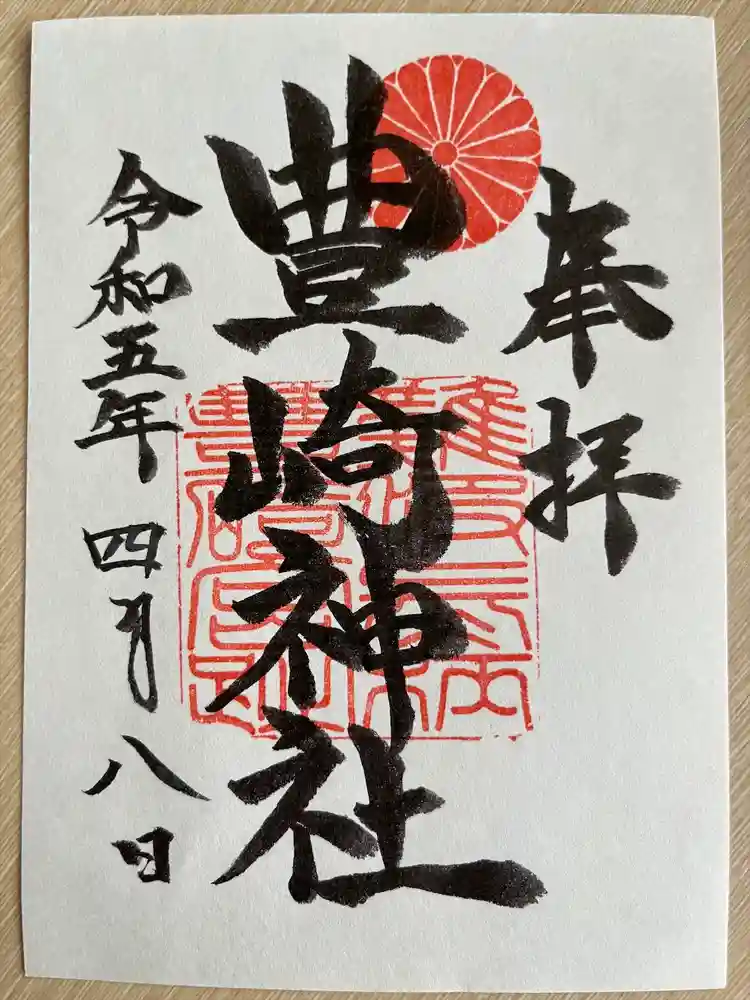 奉拝
豊崎神社
令和五年四月八日